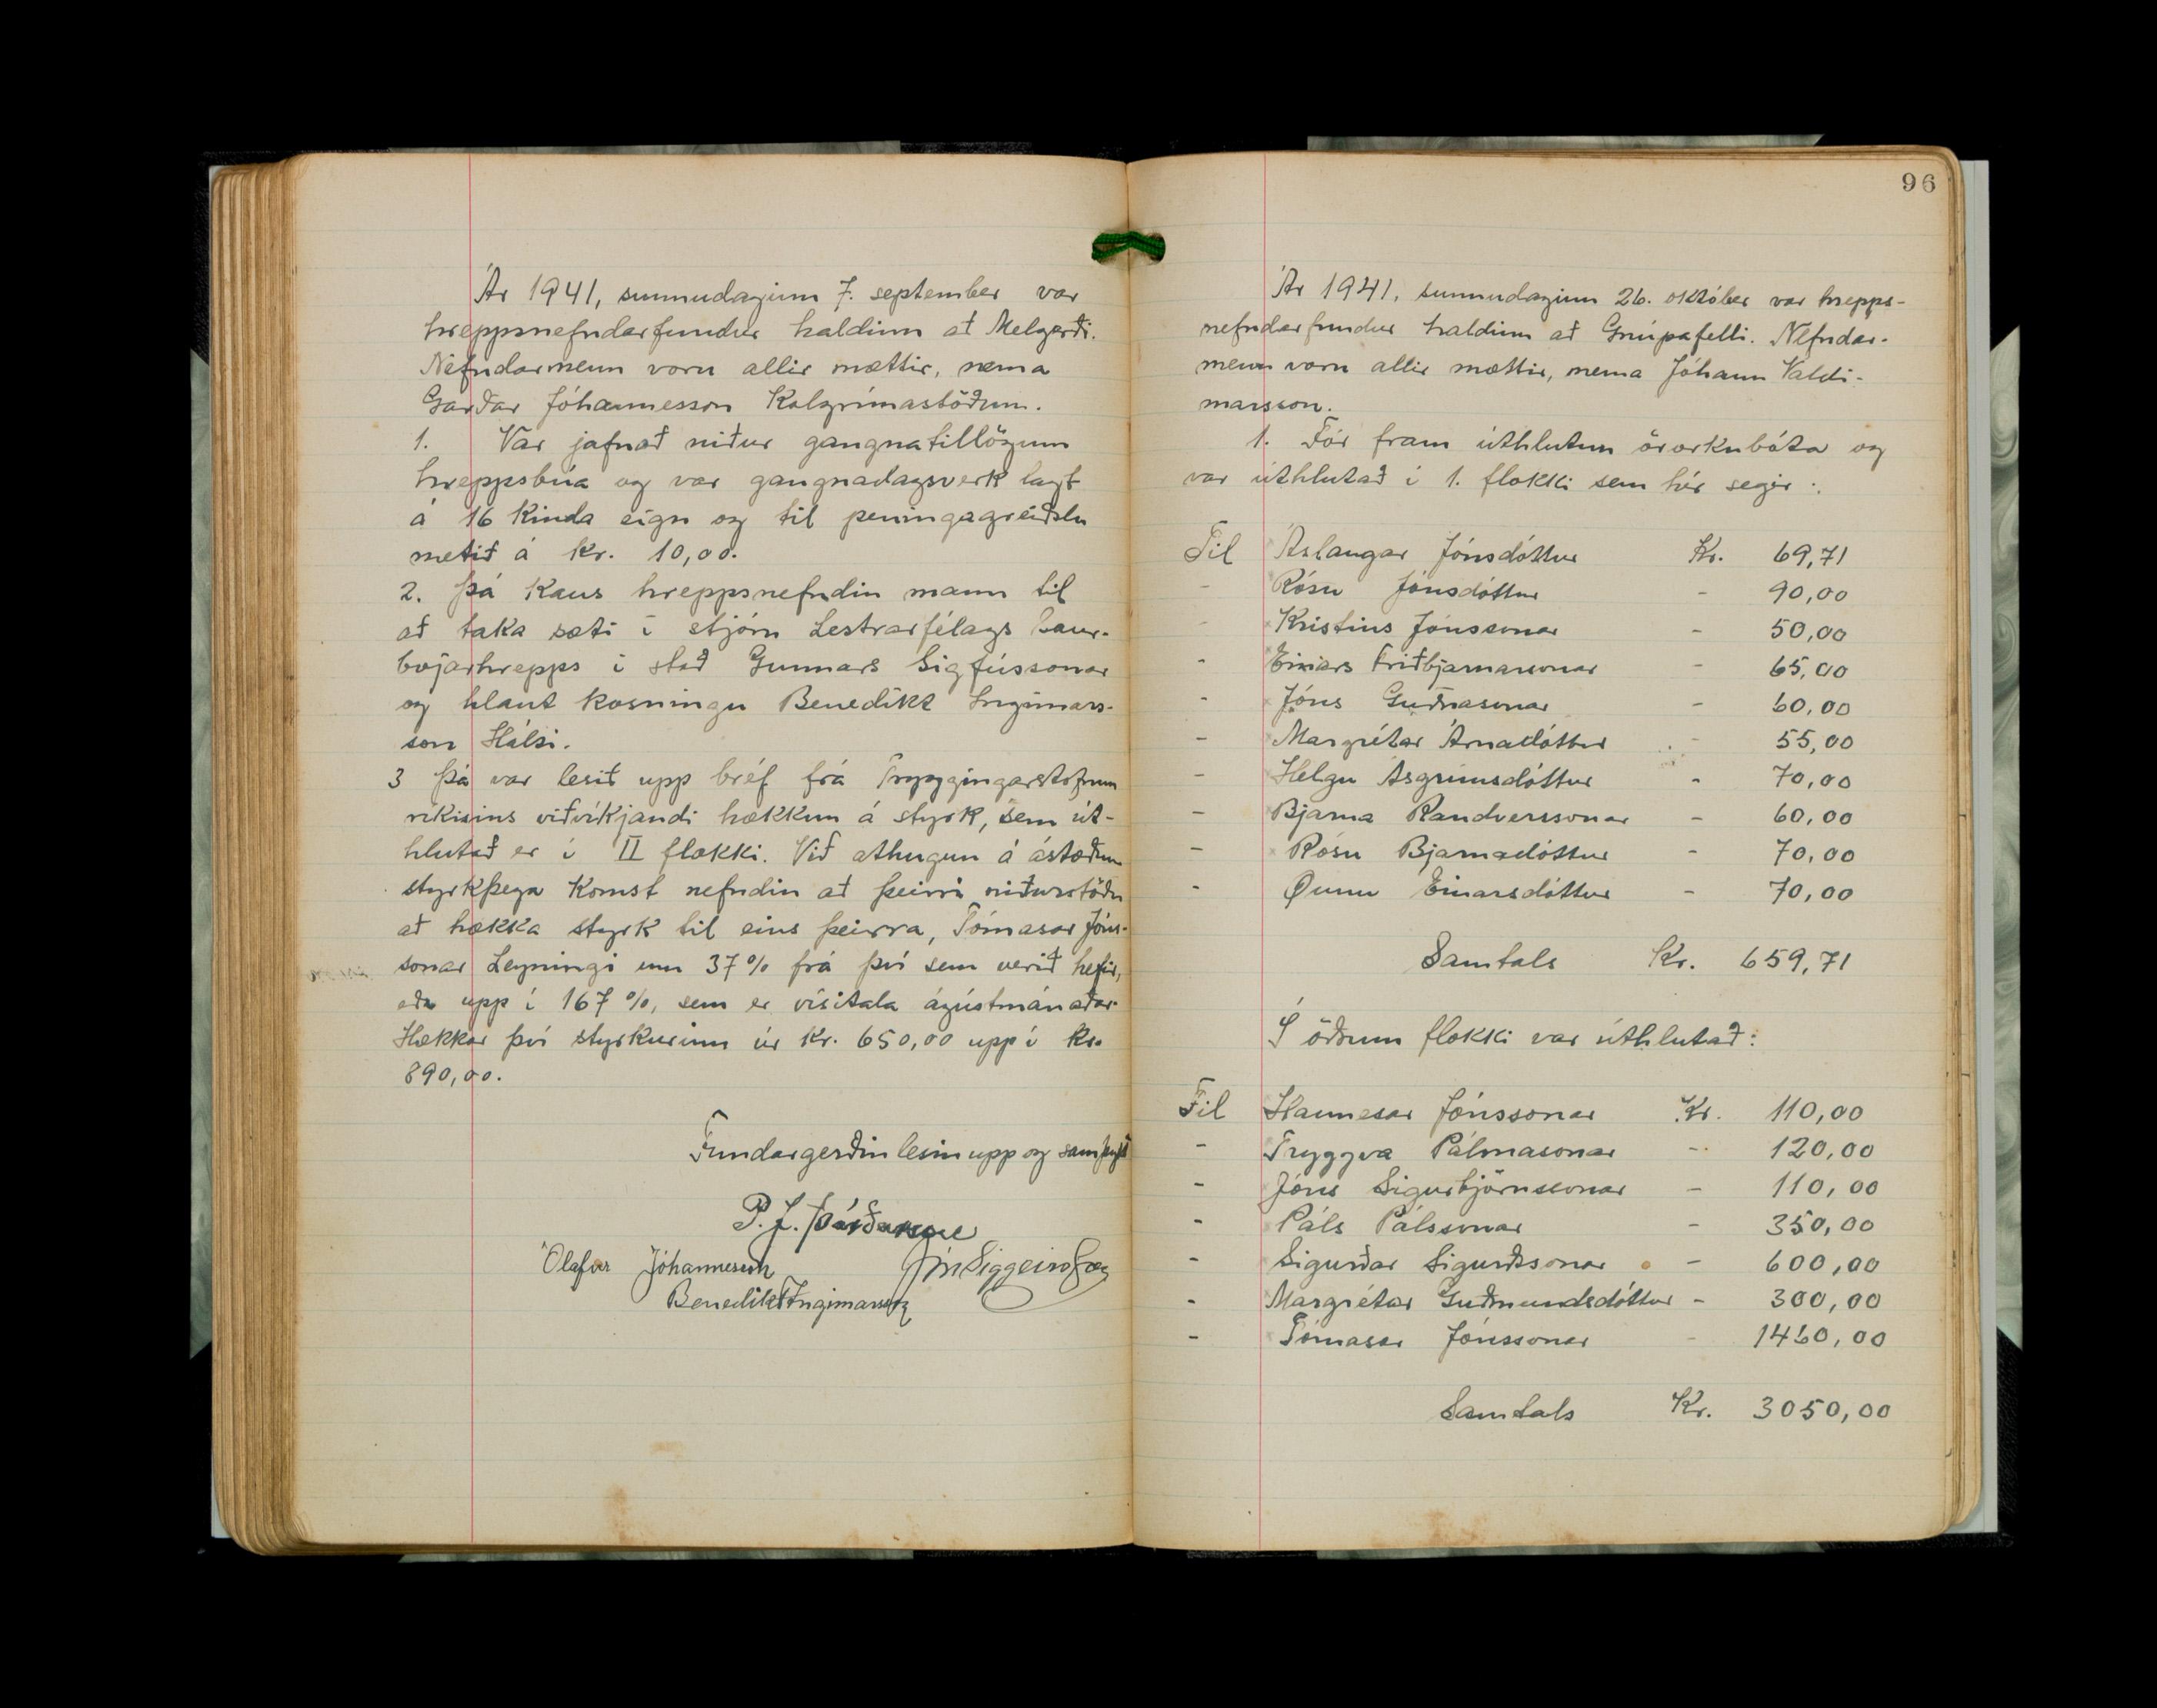 Ár 1941, sunnudaginn 7. september var
hreppsnefndarfundur haldinn að Melgerði.
Nefndarmenn voru allir mættir, nema
Garðar Jóhannesson Kolgrímastöðum.
1. Var jafnað niður gangnatillögum
hreppsbúa og var gangnadagsverk lagt
á 16 kinda eign og til peningagreiðslu
metið á kr. 10,00.
2. Þá kaus hreppsnefndin mann til
að taka sæti í stjórn Lestrarfélags Saur-
bæjarhrepps í stað Gunnars Sigfússonar
og hlaut kosningu Benedikt Ingimars-
son Hálsi.
3 Þá var lesið upp bréf frá Tryggingarstofnun
ríkisins viðvíkjandi hækkun á styrk, sem út-
hlutað er í II flokki. Við athugun á ástæðum
styrkþega komst nefndin að þeirri niðurstöðu
að hækka styrk til eins þeirra, Tómasar Jóns-
sonar Leyningi um 37% frá því sem verið hefir,
eða upp í 167%, sem er vísitala ágústmánaðar.
Hækkar því styrkurinn úr kr. 650,00 upp í kr.
890,00.
Fundargerðin lesin upp og samþykt
P. J. Þórðarson
Ólafur Jóhannesson Jón Siggeirsson
Benedikt Ingimarsson
96
Ár 1941, sunnudaginn 26. október var hrepps-
nefndarfundur haldinn að Gnúpafelli. Nefndar-
menn voru allir mættir, nema Jóhann Valdi-
marsson.
1. Fór fram úthlutun örorkubóta og
var úthlutað í 1. flokki sem hér segir:
Til Áslaugar Jónsdóttur Kr. 69,71
- Rósu Jónsdóttur - 90,00
- Kristins Jónssonar - 50,00
- Einars Friðbjarnarsonar - 65,00
- Jóns Guðnasonar - 60,00
- Margrétar Árnadóttur - 55,00
- Helgu Ásgrímsdóttur - 70,00
- Bjarna Randverssonar - 60,00
- Rósu Bjarnadóttur - 70,00
- Önnu Einarsdóttur - 70,00
Samtals Kr. 659,71
Í öðrum flokki var úthlutað:
Til Hannesar Jónssonar Kr. 110,00
- Tryggva Pálmasonar - 120,00
- Jóns Sigurbjörnssonar - 110,00
- Páls Pálssonar - 350,00
- Sigurðar Sigurðssonar - 600,00
- Margrétar Guðmundsdóttur - 300,00
- Tómasar Jónssonar - 1460,00
Samtals Kr. 3050,00